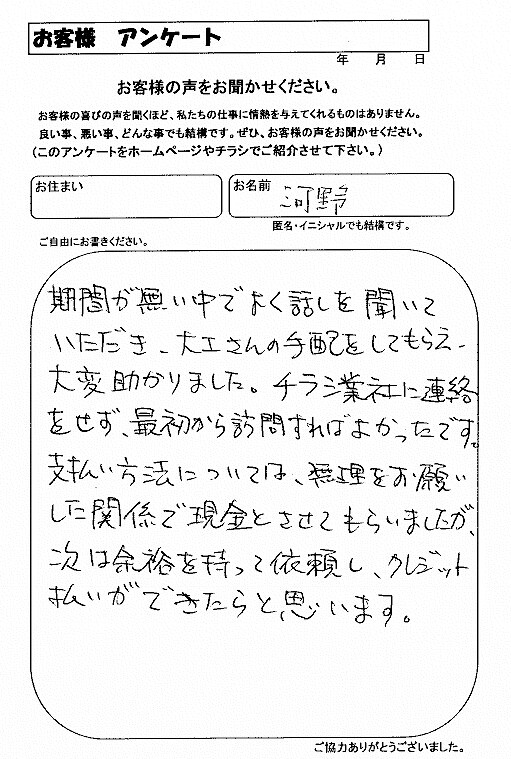 お客様 アンケート
年 月 日
お客様の声をお聞かせください。
お客様の喜びの声を聞くほど、私たちの仕事に情熱を与えてくれるものはありません。
良い事、悪い事、どんな事でも結構です。ぜひ、お客様の声をお聞かせください。
(このアンケートをホームページやチラシでご紹介させて下さい。)
お住まい
お名前 河野
匿名・イニシャルでも結構です。
ご自由にお書きください。
期間が無い中でよく話しを聞いて
いただき、大工さんの手配をしてもらえ、
大変助かりました。チラシ業社に連絡
をせず、最初から訪問すればよかったです。
支払い方法については、無理をお願い
した関係で現金とさせてもらいましたが、
次は余裕を持って依頼し、クレジット
払いができたらと思います。
ご協力ありがとうございました。